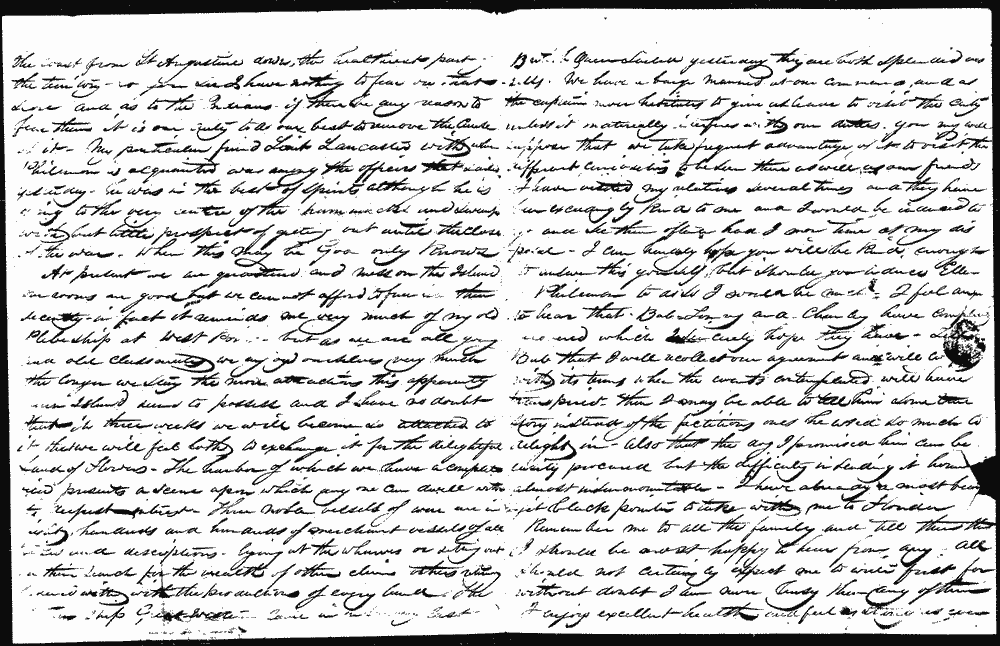 the coast from St Augustine down, the healthiest part
the territory - so you see I have nothing to fear on that
score and as to the Indians if there be any reason to
fear them it is our duty to do our best to remove the cause
of it - My particular friend Lieut Lancaster with whom
Philemon is acquainted was among the officers that sailed
yesterday - he was in the best of spirits although he is
going to the very centre of the hammocks and swamps
with but little prospect of getting out until the close
of the war. When this may be God only knows
At present we are quartered and mess on the Island
our rooms are good but we cannot afford to furnish them
decently in fact it reminds me very much of my old
Plebeship at West Point - but as we are all young
and old classmates we enjoy ourselves very much
the longer we stay the more attractions this apparently
Island seems to possess and I have no doubt
that in three weeks we will become so attached to
it that we will feel loth to exchange it for the delightful
Land of Flowers - The harbor of which we have a complete
view presents a scene upon which any one can dwell with
Three noble vessels of war are in
hundreds and hundreds of merchant vessels of all
and descriptions - lying at the wharves or setting out
in their search for the wealth of other climes others
with the productions of every land. The
Ship Great Western came in
British Queen sailed yesterday they are both splendid
We have a barge manned at our command, and as
the captain never hesitates to give us leave to visit the City
unless it materially interferes with our duties. you may well
suppose that we take frequent advantage of it to visit the
different curiosities to be seen there as well as our friends
I have visited my relatives several times and they have
been exceedingly kind to me and I would be induced to
go and see them oftener had I more time at my dis
posal - I can hardly hope you will be kind enough
to answer this yourself, but should you induce Ellen
Philemon to do so I would be much - I feel anx
to hear that Bub and Charley have completely
recovered which I sincerely hope they have -
Bub that I will recollect our agreement and will
with its terms when the events contemplated will have
transpired. then I may be able to tell him alone true
story instead of the fictitious ones he used so much to
delight in - also that the I promised him can be
easily procured but the difficulty in sending it home
almost insurmountable - I have already a most
jet black pointer to take with me to Florida
Remember me to all the family and tell them that
I should be most happy to hear from any. all
should not certainly expect me to write first for
without doubt I am more busy than any of them
I enjoy excellent health and feel as strong as ever